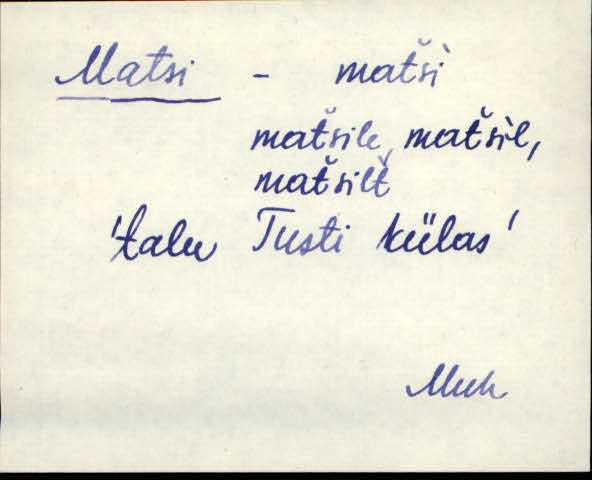 Matsi - matši
matšile, matšil,
matšilt
'talu Tusti külas'
Muh